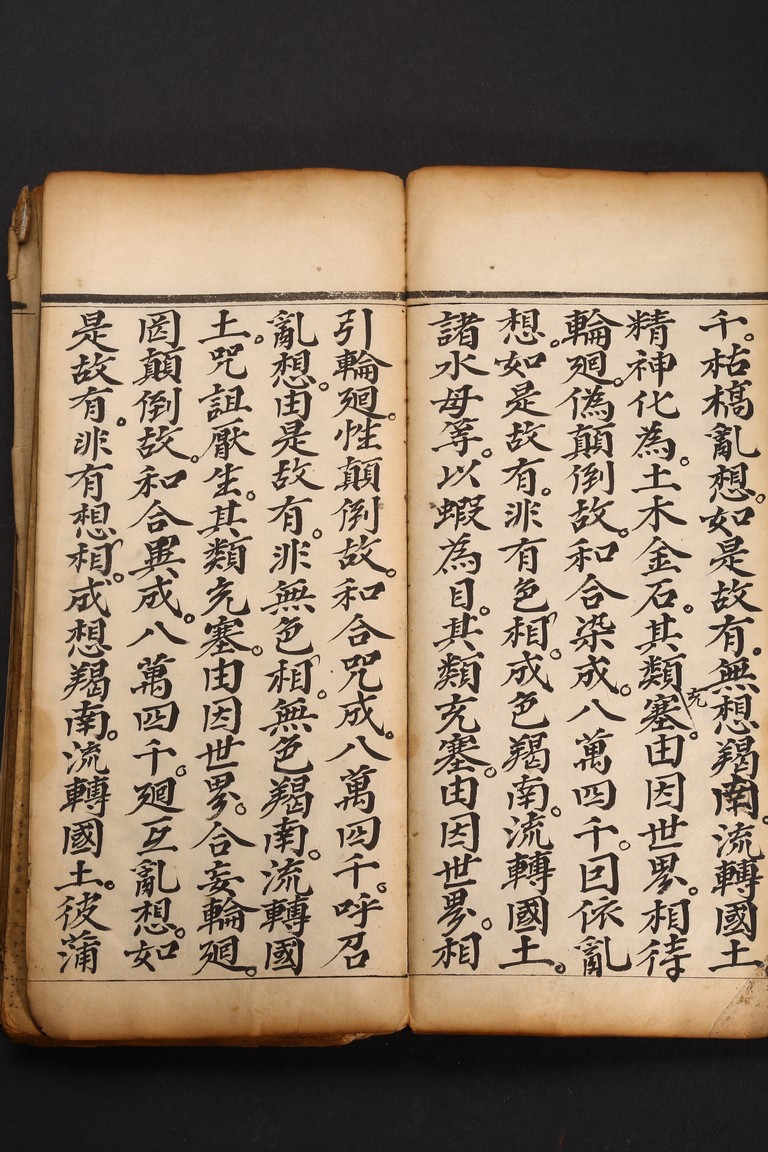 千。枯槁亂想。如是故有。無想羯南。流轉國土
精神化為。土木金石。其類充塞。由因世界。相待
輪廻。偽顛倒故。和合染成。八萬四千。囙依亂
想。如是故有。非有色相。成色羯南。流轉國土。
諸水母等。以蝦為目。其類充塞。由因世界。相
引輪廻。性顛倒故。和合咒成。八萬四千。呼召
亂想。由是故有。非無色相。無色羯南。流轉國
土。咒詛厭生。其類充塞。由因世界。合妄輪廻。
罔顛倒故。和合異成。八萬四千。廻互亂想。如
是故有。非有想相。成想羯南。流轉國土。彼蒲